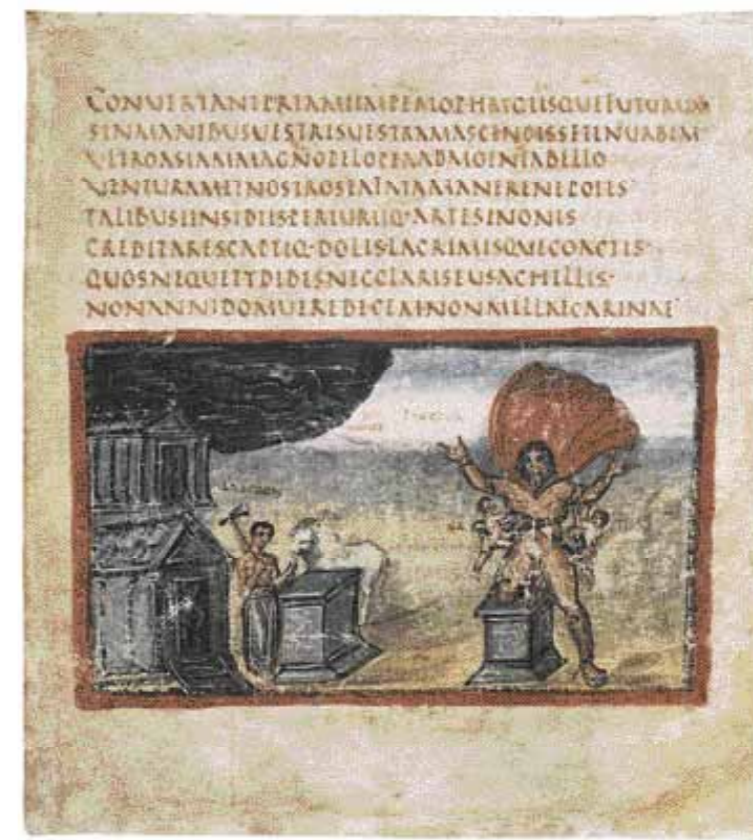 CONUERTANTPRIAMIIMPERIOPHRYGIBUSQUEFUTURUM
SINMANIBUSUESTRISUESTRAMASCENDISSETINURBEM
ULTROASIAMMAGNOPELOPEAADMOENIABELLO
UENTURAMETNOSTROSEAFATAMANERENEPOTES
TALIBUSINSIDIISPERIURIIQ·ARTESINONIS
CREDITARESCAPTIQ·DOLISLACRIMISQUECOACTIS·
QUOSNEQUETYDIDESNECCLARISEUSACHILLIS·
NONANNIDOMUEREDECEMNONMILLECARINAE